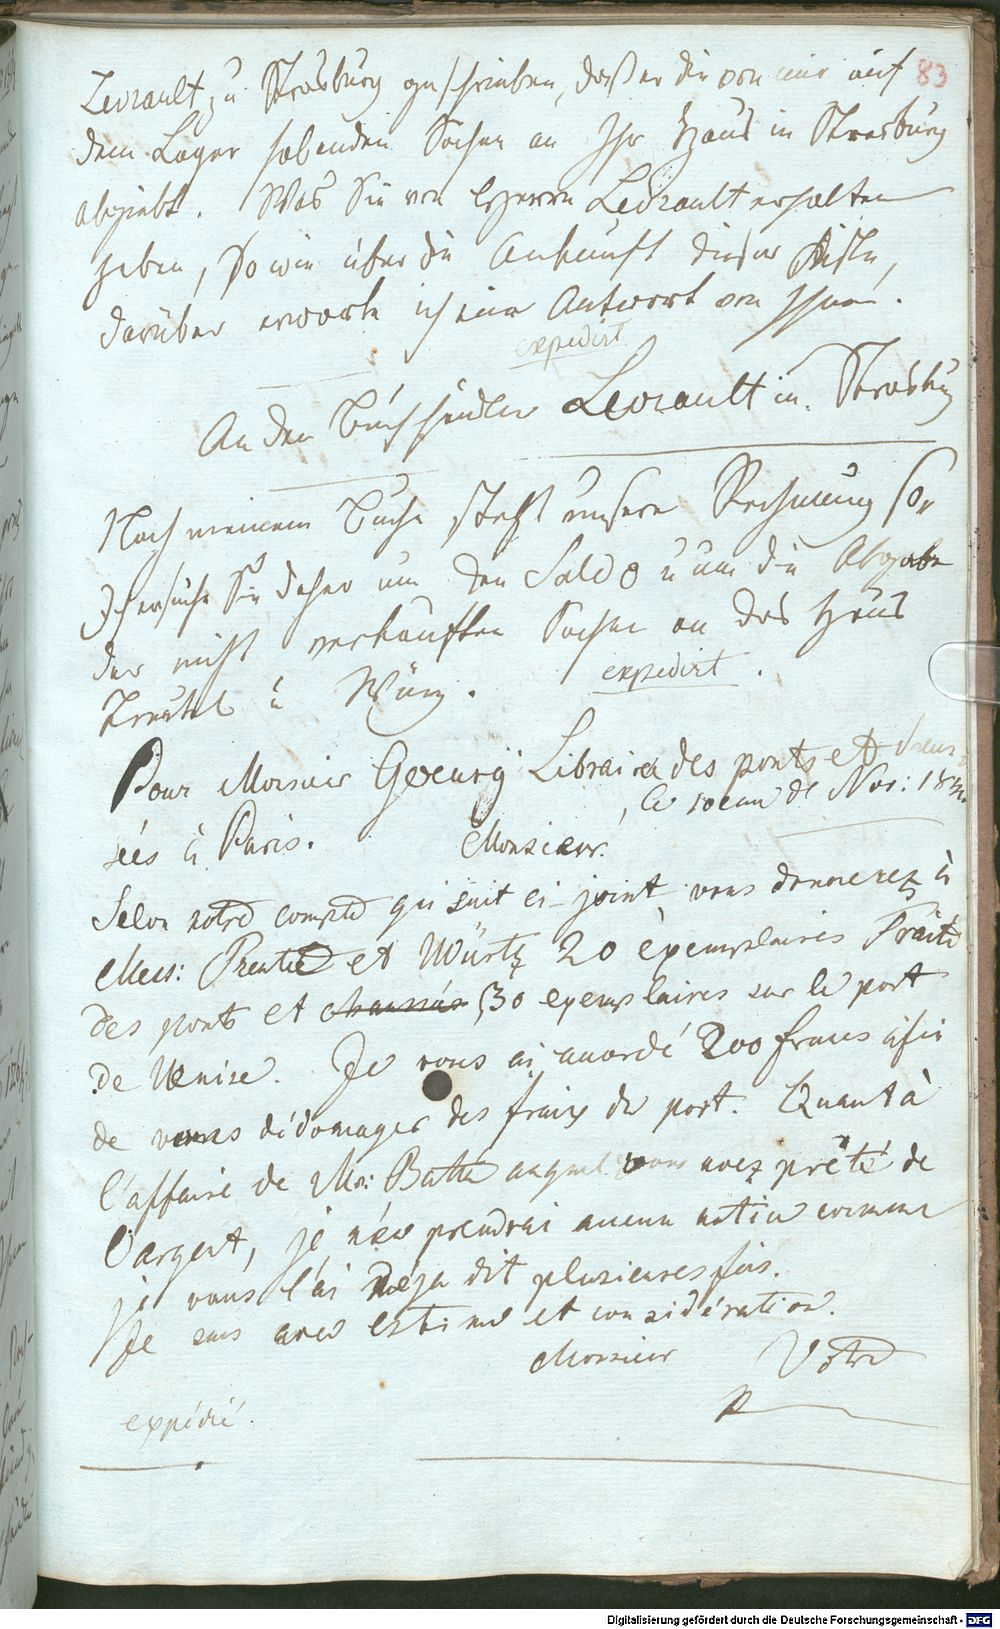 83
Levrault zu Strasburg geschrieben, daß er die von mir auf
dem Lager habenden Sachen an Ihr Haus in Strasburg
abgiebt. Was Sie von Herrn Levrault erhalten
haben, so wie über die Ankunft dieser Kiste,
darüber erwarte ich eine Antwort von Ihnen.
expedirt
An den Buchhändler Levrault in Strasburg
Nach meinem Buche steht unsere Rechnung so,
Ich ersuche Sie daher um den Saldo u um die Abgabe
der nicht verkauften Sachen an das Haus
Treuttel u Würz.
expedirt.
Pour Monsieur Goeury Libraire des ponts et
le 10eme de Nov: 18
sées à Paris.
Monsieur.
Selon notre compte qui suit ci-joint vous donnerez à
Mess: et Würtz 20 exemplaires Traité
des ponts et chaussées 30 exemplaires sur le port
de Venise. Je vous ai accordé 200 francs afin
de vous dédomager des fraix de port. Quant à
l'affaire de Mr: auquel vous avez prêté de
l'argent, je n'en prendrai aucune notice comme
je vous l'ai deja dit plusieurs fois.
Je suis avec estime et considération.
Monsieur Votre
expédié.
Digitalisierung gefördert durch die Deutsche Forschungsgemeinschaft - DFG